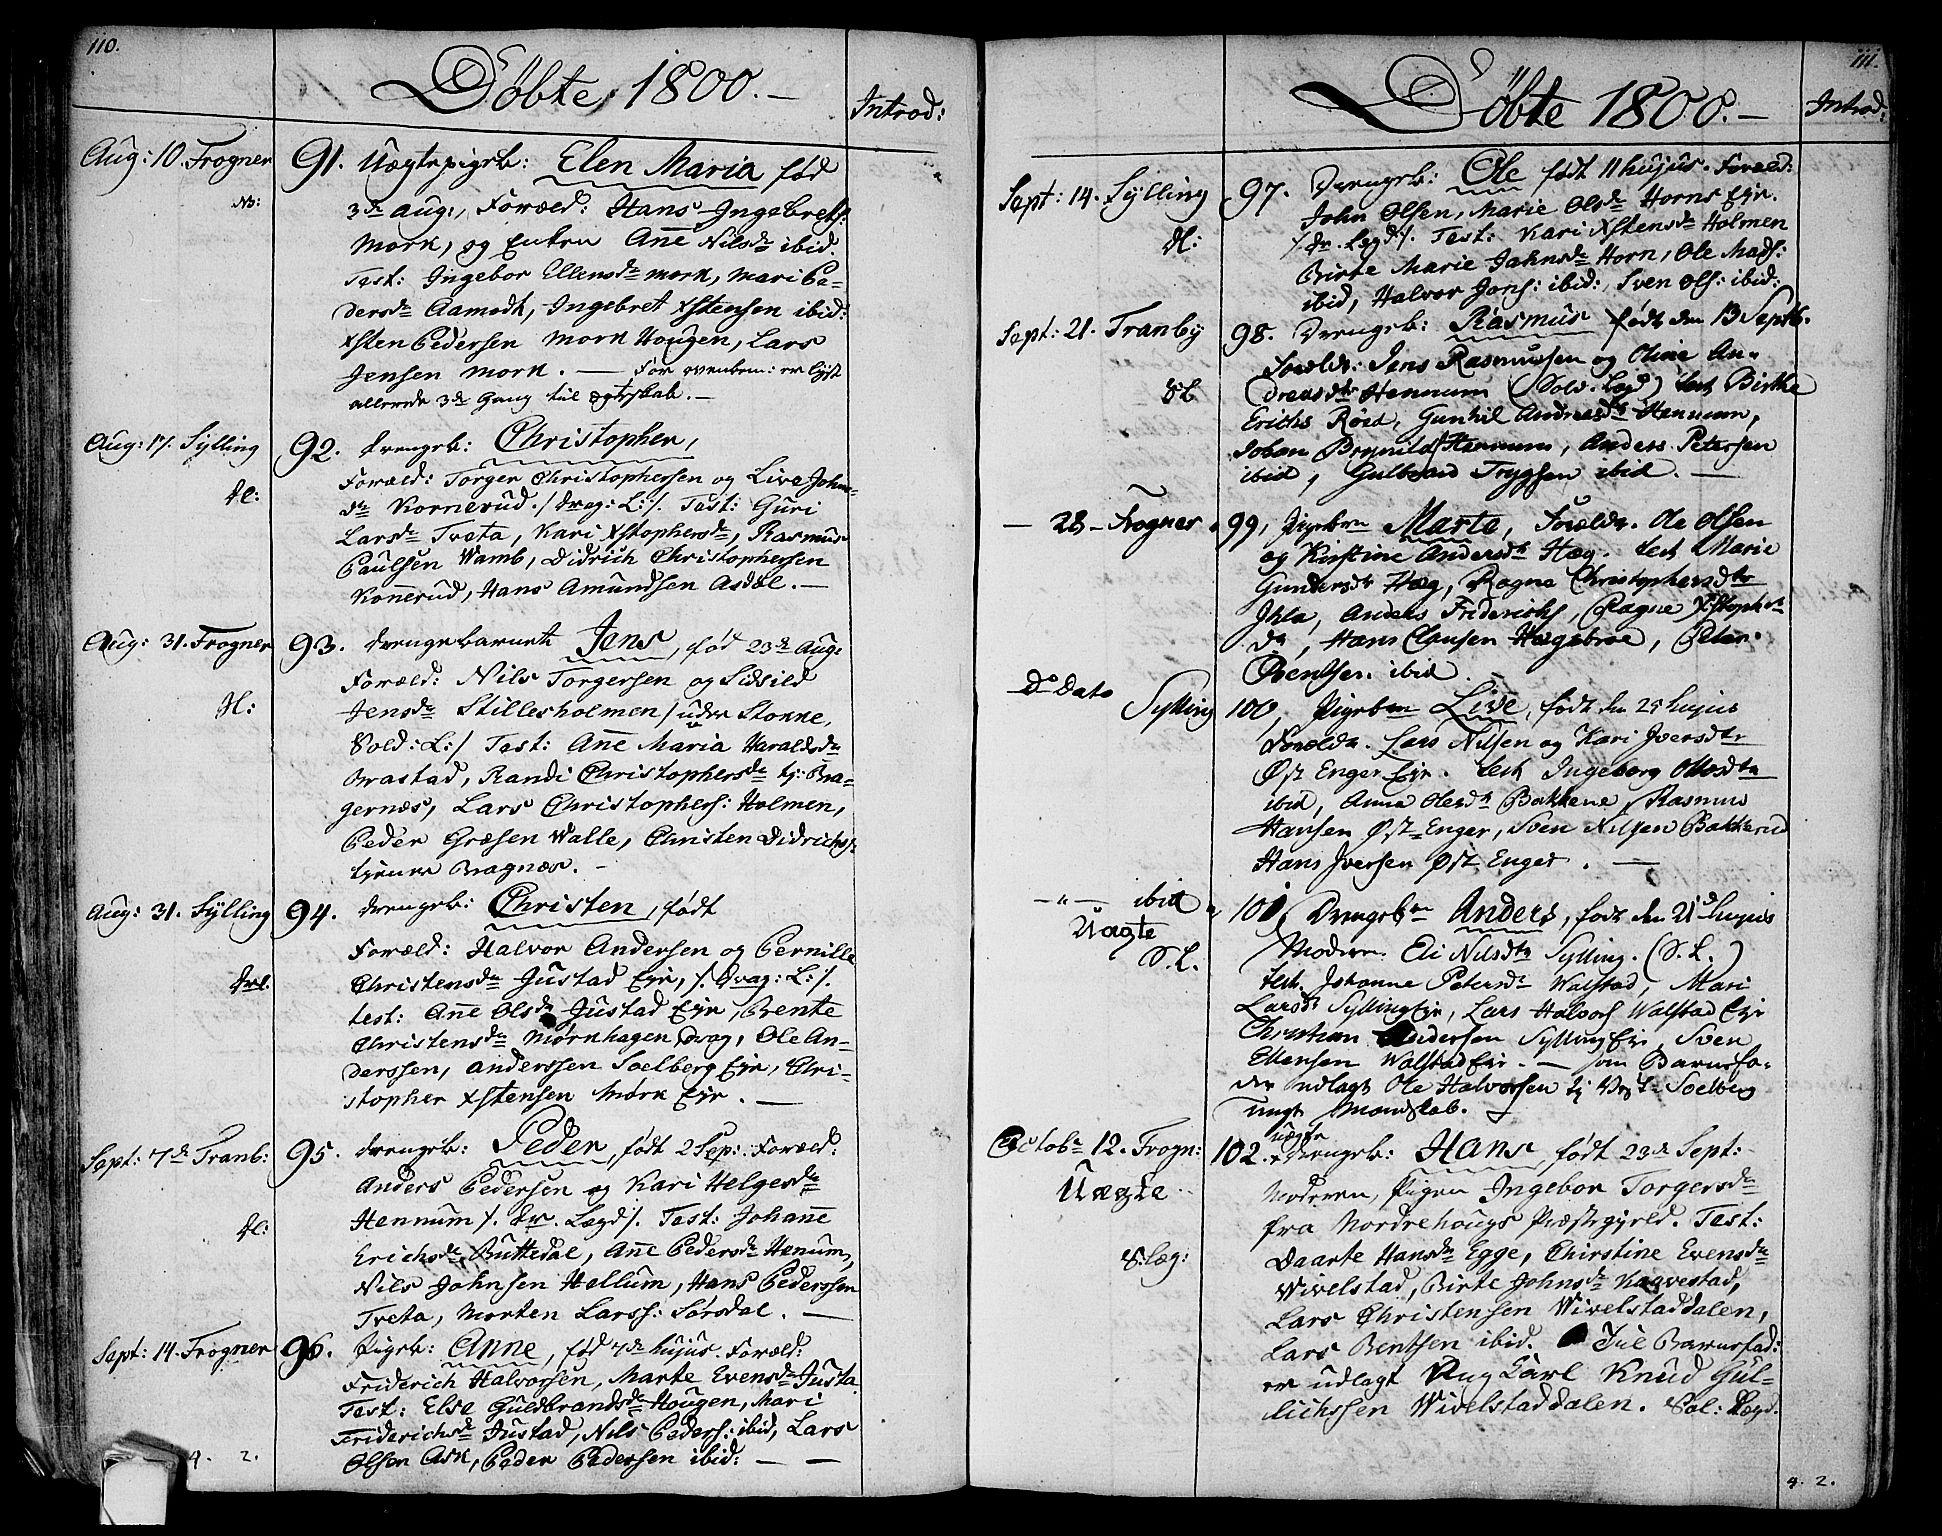 110.
Döbte 1800.—
Introd:
Aug: 10. Frogner 91. Uægtepigeb: Elen Maria fød
NB:
3de Aug:, Foræld: Hans Ingebrets:
Mork, og Enken Añe Nilsdr ibid.
Test: Ingebor Ellensdr Mork, Mari Pe-
dersdr Aamodt, Ingebret Xstensen ibid:
Xsten Pedersen Mork Hougen, Lars
Jensen Mork. — For ovenbem: er lyst
allerede 3de Gang til ægteskab.—
Aug: 17. Sylling 92. drengeb: Christopher,
Foræld: Torger Christophersen og Live Johns-
dl:
dr Kornerud ./ drag: L:/. Test: Guri
Larsdr Tveta, Kari Xstophersdr, Rasmus
Paulsen Wamb, Didrich Christophersen
Konerud, Hans Amundsen Asdøl.—
Aug: 31. Frogner 93. drengebarnet Jens, fød 23de Aug:
Foræld: Nils Torgersen og Sidsild
Jensdr Stillesholmen / uden Stokke,
Sold: L:/ Test: Añe Maria Haraldsdr
Brastad, Randi Christophersdr tj: Bra-
gernæs, Lars Christophers: Holmen,
Peder Græsen Walle, Christen Didrichs:
tjener Bragnæs.—
Aug: 31. Sylling 94. drengeb: Christen, født
Foræld: Halvor Andersen og Pernille
Christensdr Justad Eje, /. Drag: L:/.
test: Añe Olsdr Justad Eje, Bente
Christensdr Mørkhagen Drag, Ole An-
derssen, Anderssen Soelberg Eje, Chri-
stopher Xstensen Mørk Eje.—
Sept: 7de Tranb: 95. drengeb: Peder, født 2 Sep: Foræld:
Anders Pedersen og Kari Helgesdr
dl:
Hennum /. dr. Lægd/. Test: Johañe
Erichsdr Buttedal, Añe Pedersdr Henum,
Nils Johnsen Hellum, Hans Pederssen
Tveta, Morten Larss: Sørsdal.—
Sept: 14. Frogner 96. Pigeb: Anne, fød 7de hujus. Foræld:
Friderich Halvorsen, Marte Evensdr Justa
Test: Else Guldbrandsdr Hougen, Mari
Friderichsdr Justad, Nils Peders: ibid, Lars
Olsen Ask, Peder Pedersen ibid: — —
9. 2.
111.
Döbte 1800.—
Introd:
Sept: 14. Sylling 97. Drengeb: Ole født 11 hujus. Foræld:
John Olsen, Marie Olsdr Horns Eje.
dl:
/dr. Lægd/. Test: Kari Xstensdr Holmen
Birte Marie Jahnsdr Horn, Ole Mads:
ibid, Halvor Jons: ibid:, Sven Ols: ibid:
Sept: 21. Tranby 98. Drengeb: Rasmus født den 13 Septb.
Foreldr: Jens Rasmussen og Oline An-
dreasdtr Hennum (Sold. Lægd) test Birthe
Erichs Röed, Gunhil Andreasdr Hennum,
Joban Brynilds Hennum, Anders Petersen
ibid, Gulbrand Trygsen ibid.—
— 28— Frogner 99, Pigebrn Marte, Foreldr. Ole Olsen
og Kirstine Andersdtr Hæg. test Marie
Gundersdtr Hæg, Ragne Christophersdtr
Jhla, Anders Friderichs, Ragne Xstophr
dr, Hans Clausen Hægebroe, Peter
Bentsen ibid.
Do Dato Sylling 100, Pigebrn Live, født den 25 hujus
Foreldr. Lars Nilsen og Kari Iversdtr
Øst Enger Eje. test Ingeborg Olesdtr
ibid, Anna Olesdr Bakkene, Rasmus
Hansen Øst-Enger, Sven Nilsen Bakkerud
Hans Iversen Øst Enger.—
—"— ibid 101, Drengebrn Anders, født den 21de hujus
Uægte
Moderen. Eli Nilsdtr Sylling. (S. L.)
S. L.
test. Johanne Petersdr Walstad, Mari
Larsdtr Sylling Eje, Lars Halvors Walstad Eje
Christian Andersen Sylling Eje, Sven
Ellensen Walstad Eje.— som Barnefa-
der udlagt Ole Halvorsen Soelberg
ungt Mandskab.
Octobr 12. Frogn: 102. uægte Drengeb: Hans, født 23de Sept:
Uægte
Moderen, Pigen Ingebor Torgersdr
fra Nordrehougs Præstegjeld. Test:
S: Læg:
Daarte Hansdr Egge, Christine Evensdr
Wivelstad, Birte Johnsdr Kaavestad,
Lars Christensen Wivelstaddalen,
Lars Bentsen ibid. Til Barnefad:
er udlagt Ung Karl Knud Gul-
lichssen Wivelstaddalen. Sol: Lægd.
9. 2.